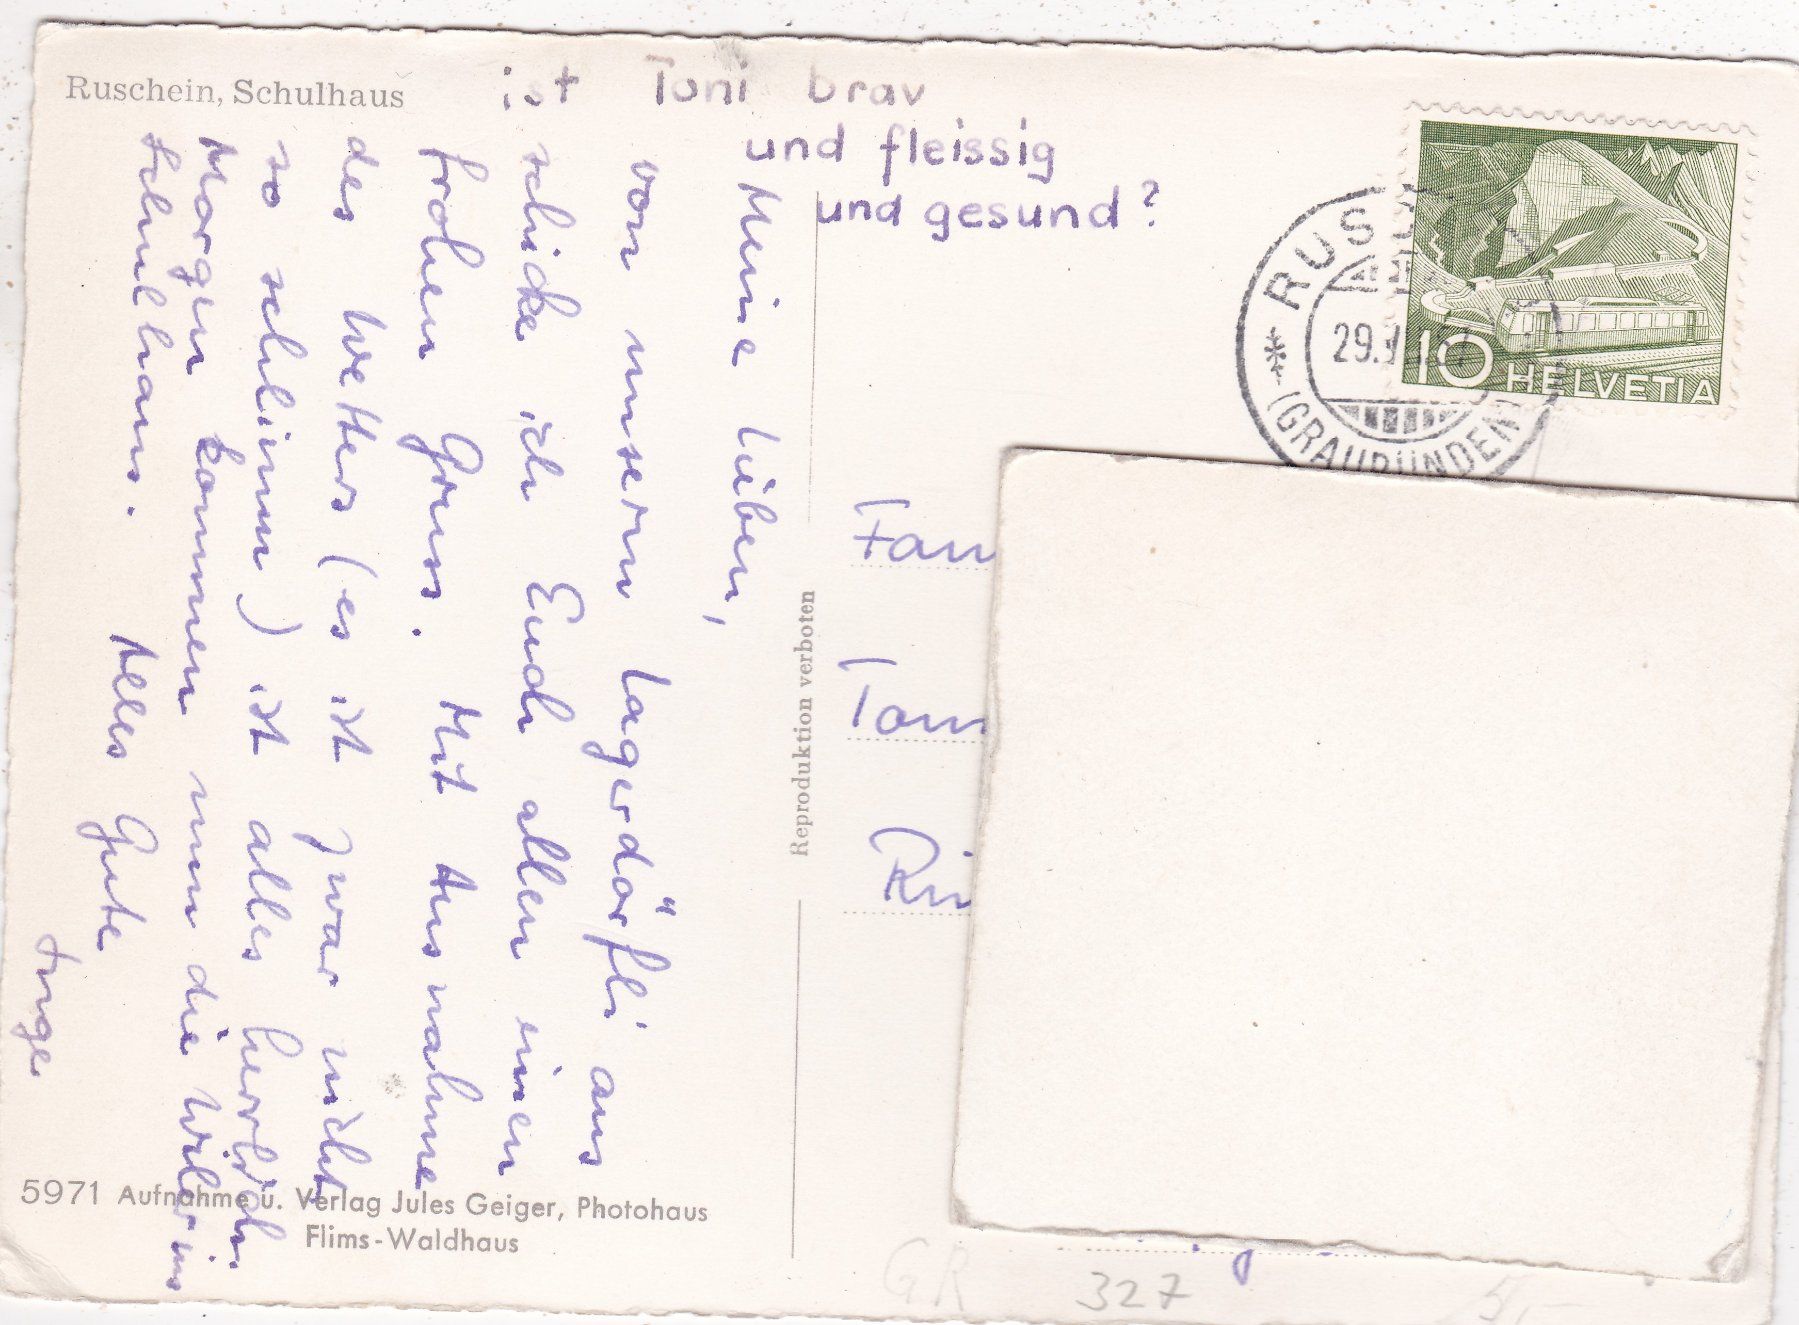 Ruschein, Schulhaus
ist Toni brav
und fleissig
und gesund?
Meine Lieben,
von unserm Lagerdörfli aus
schicke ich Euch allen einen
frohen Gruss. Mit Ausnahme
des Wetters (es ist zwar nicht
so schlimm) ist alles herrlich
Morgen kommen nun die Wiler ins
Schulhaus. Alles Gute
Inge
Reproduktion verboten
5971 Aufnahme u. Verlag Jules Geiger, Photohaus
Flims-Waldhaus
RUS
29.
(GRAUBÜNDEN)
10 HELVETIA
Fam
GR
327
5,-